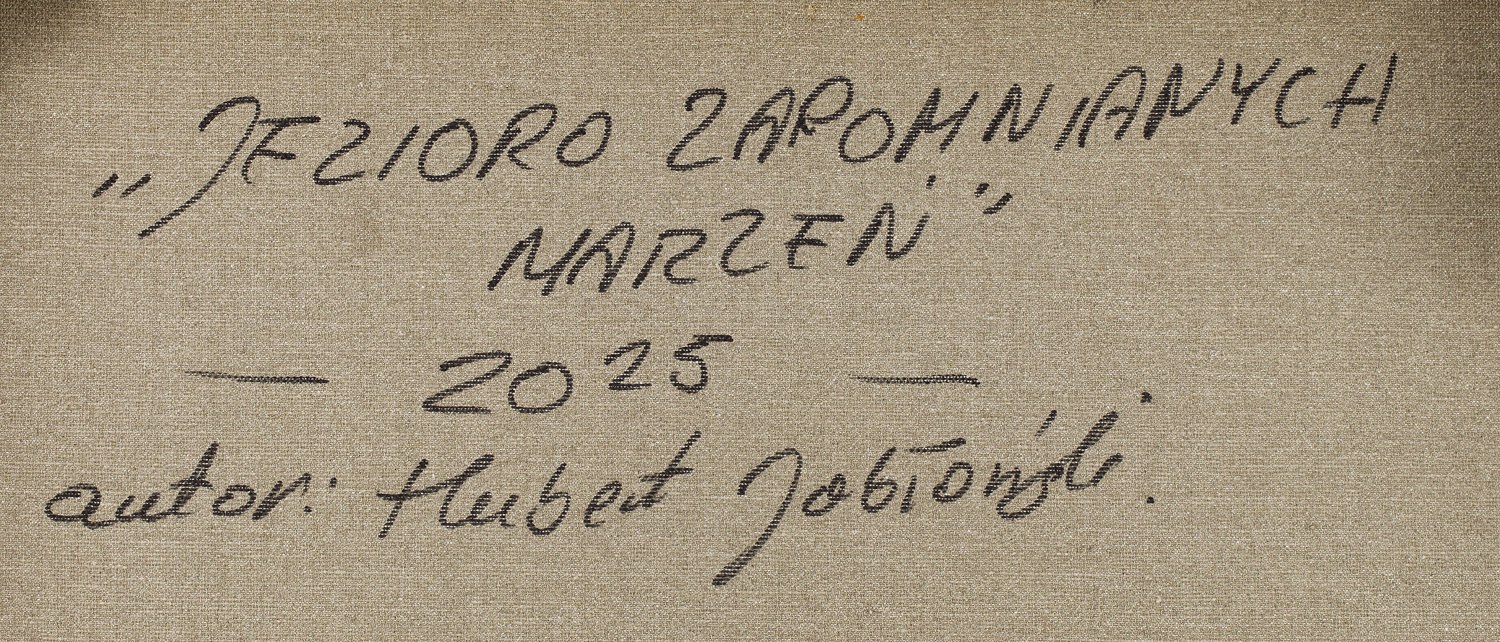 „JEZIORO ZAPOMNIANYCH
MARZEŃ"
— 2025 —
autor: Hubert Jabłoński.